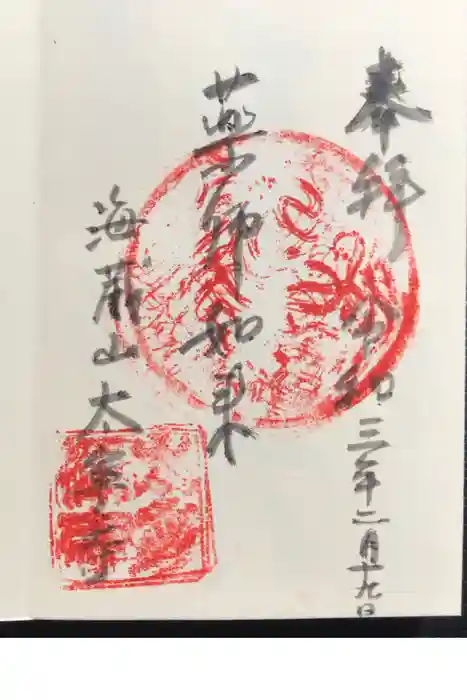 奉拝 令和三年二月十九日
薬師如来
海蔵山太寧寺